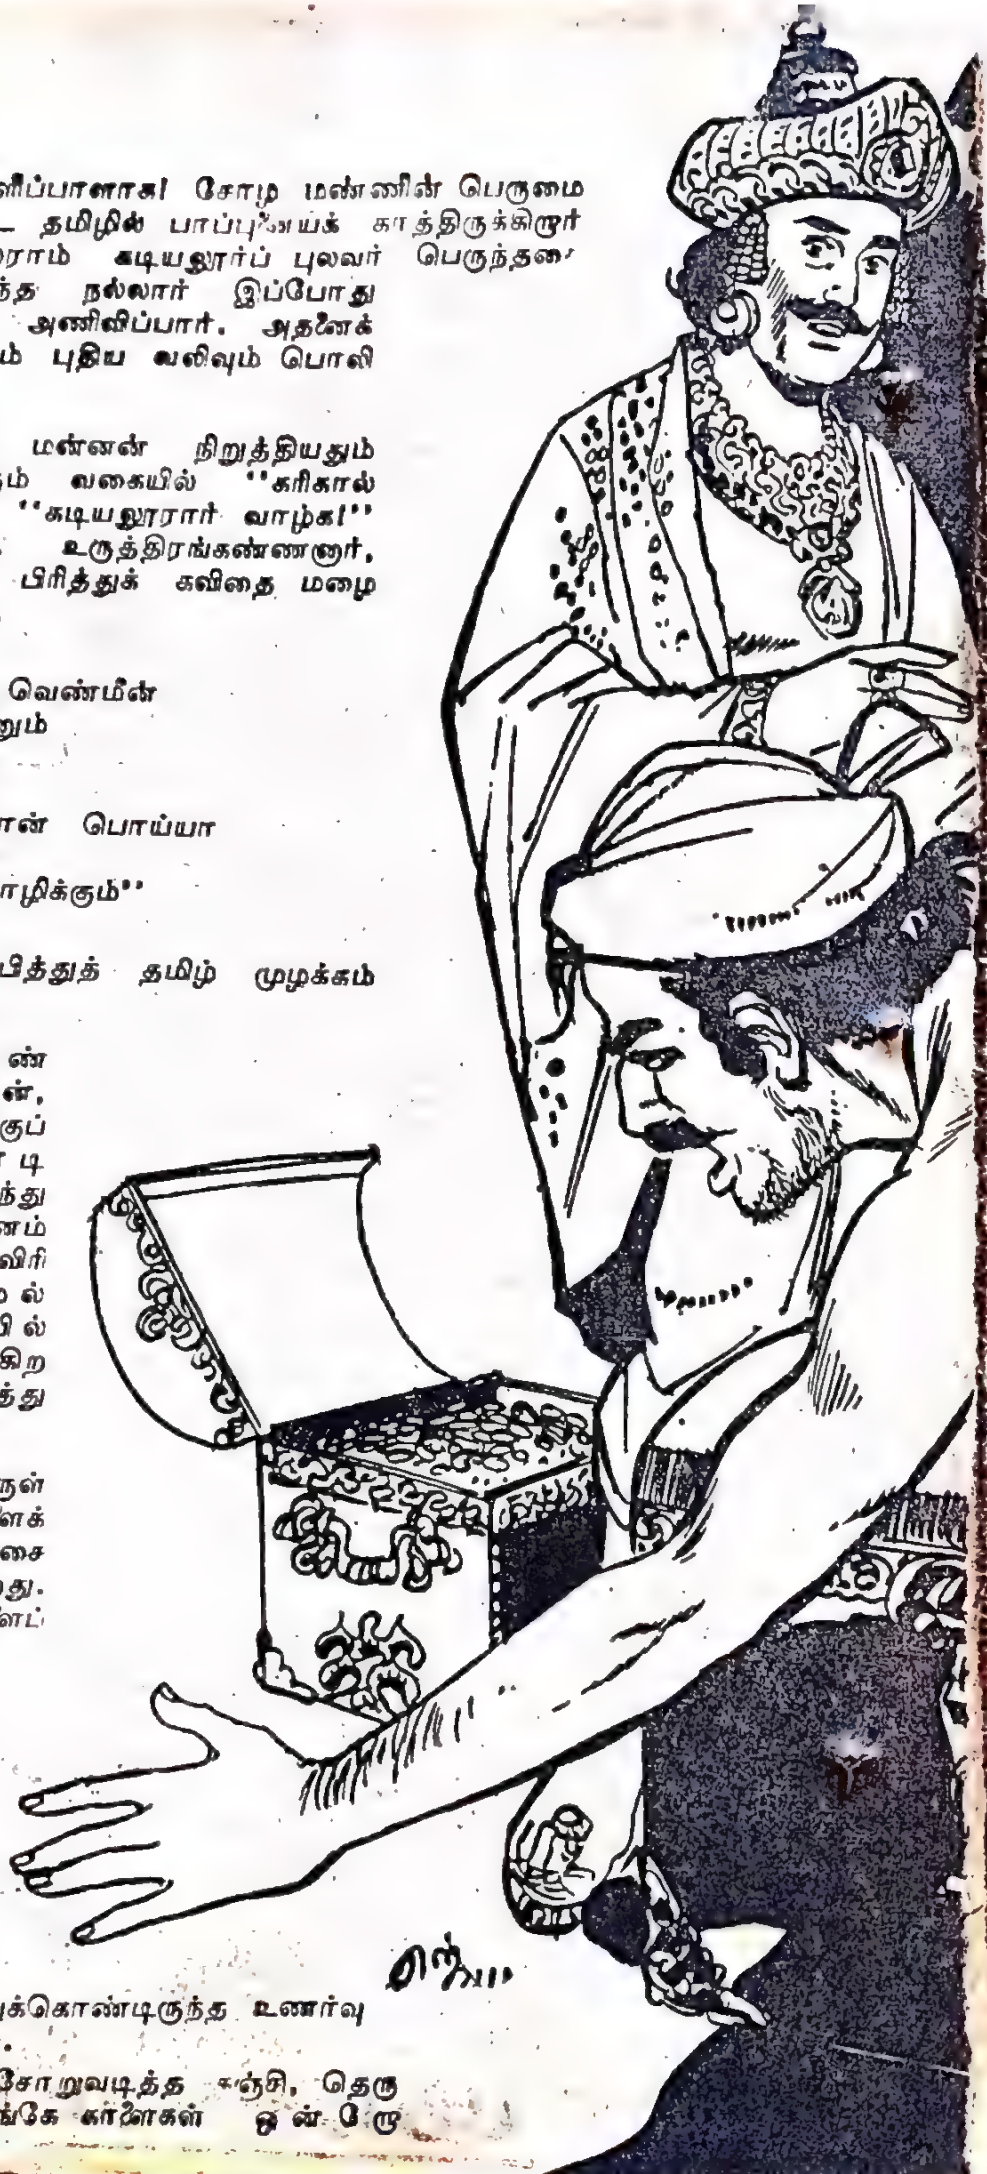 ளிப்பாளாக! சோழ மண்ணின் பெருமை
தமிழில் பாப்புனையக் காத்திருக்கிறார்
ரராம் கடியலூர்ப் புலவர்
ந்த நல்லார் இப்போது
அணிவிப்பார். அதனைக்
ம் புதிய வலிவும் பொலி
மன்னன் நிறுத்தியதும்
ம் வகையில் "கரிகால்
"கடியலூரார் வாழ்க!"
உருத்திரங்கண்ணனார்,
பிரித்துக் கவிதை மழை
வெண்மீன்
னும்
ான் பொய்யா
ாழிக்கும்"
பித்துத் தமிழ் முழக்கம்
ண்
ன்,
குப்
டி
ந்து
னம்
விரி
ல்
பில்
கிற
த்து
ருள்
ளைக்
சை
றது.
ளைட்
புக்கொண்டிருந்த உணர்வு
சோறுவடித்த கஞ்சி, தெரு
ங்கே காளைகள் ஒன்றோ